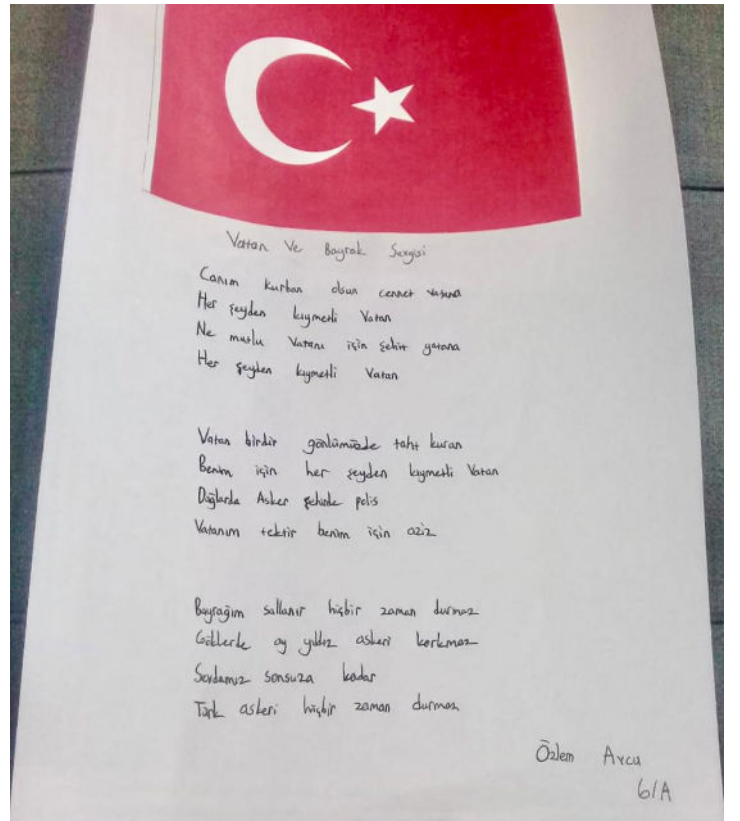 Vatan Ve Bayrak Sevgisi
Canım kurban olsun cennet vatana
Her şeyden kıymetli Vatan
Ne mutlu Vatanı için şehit yatana
Her şeyden kıymetli Vatan
Vatan birdir gönlümüzde taht kuran
Benim için her şeyden kıymetli Vatan
Dağlarda Asker şehirde polis
Vatanım tektir benim için aziz
Bayrağım sallanır hiçbir zaman durmaz
Göklerde ay yıldız askeri korkmaz
Sevdamız sonsuza kadar
Türk askeri hiçbir zaman durmaz
Özlem Avcu
6/A